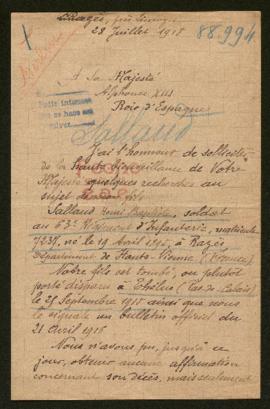 Razès, près Limoges
28 Juillet 1918
88.994
A Sa Majesté
Alphonse XIII
Roi d'Espagne
Sallaud
J'ai l'honneur de solliciter
de la haute bienveillance de Votre
Majesté quelques recherches au
sujet de mon fils
Sallaud Henri Baptiste, soldat
au 63e Régiment d'Infanterie, matricule
7237, né le 19 Avril 1895, à Razès
Département de Haute-Vienne (France)
Notre fils est tombé, ou plutôt
porté disparu à Thélus (Pas de Calais)
le 25 Septembre 1915 ainsi que nous
le signale un bulletin officiel du
21 Avril 1916
Nous n'avons pu, jusqu'à ce
jour, obtenir aucune affirmation
concernant son décès, mais seulement